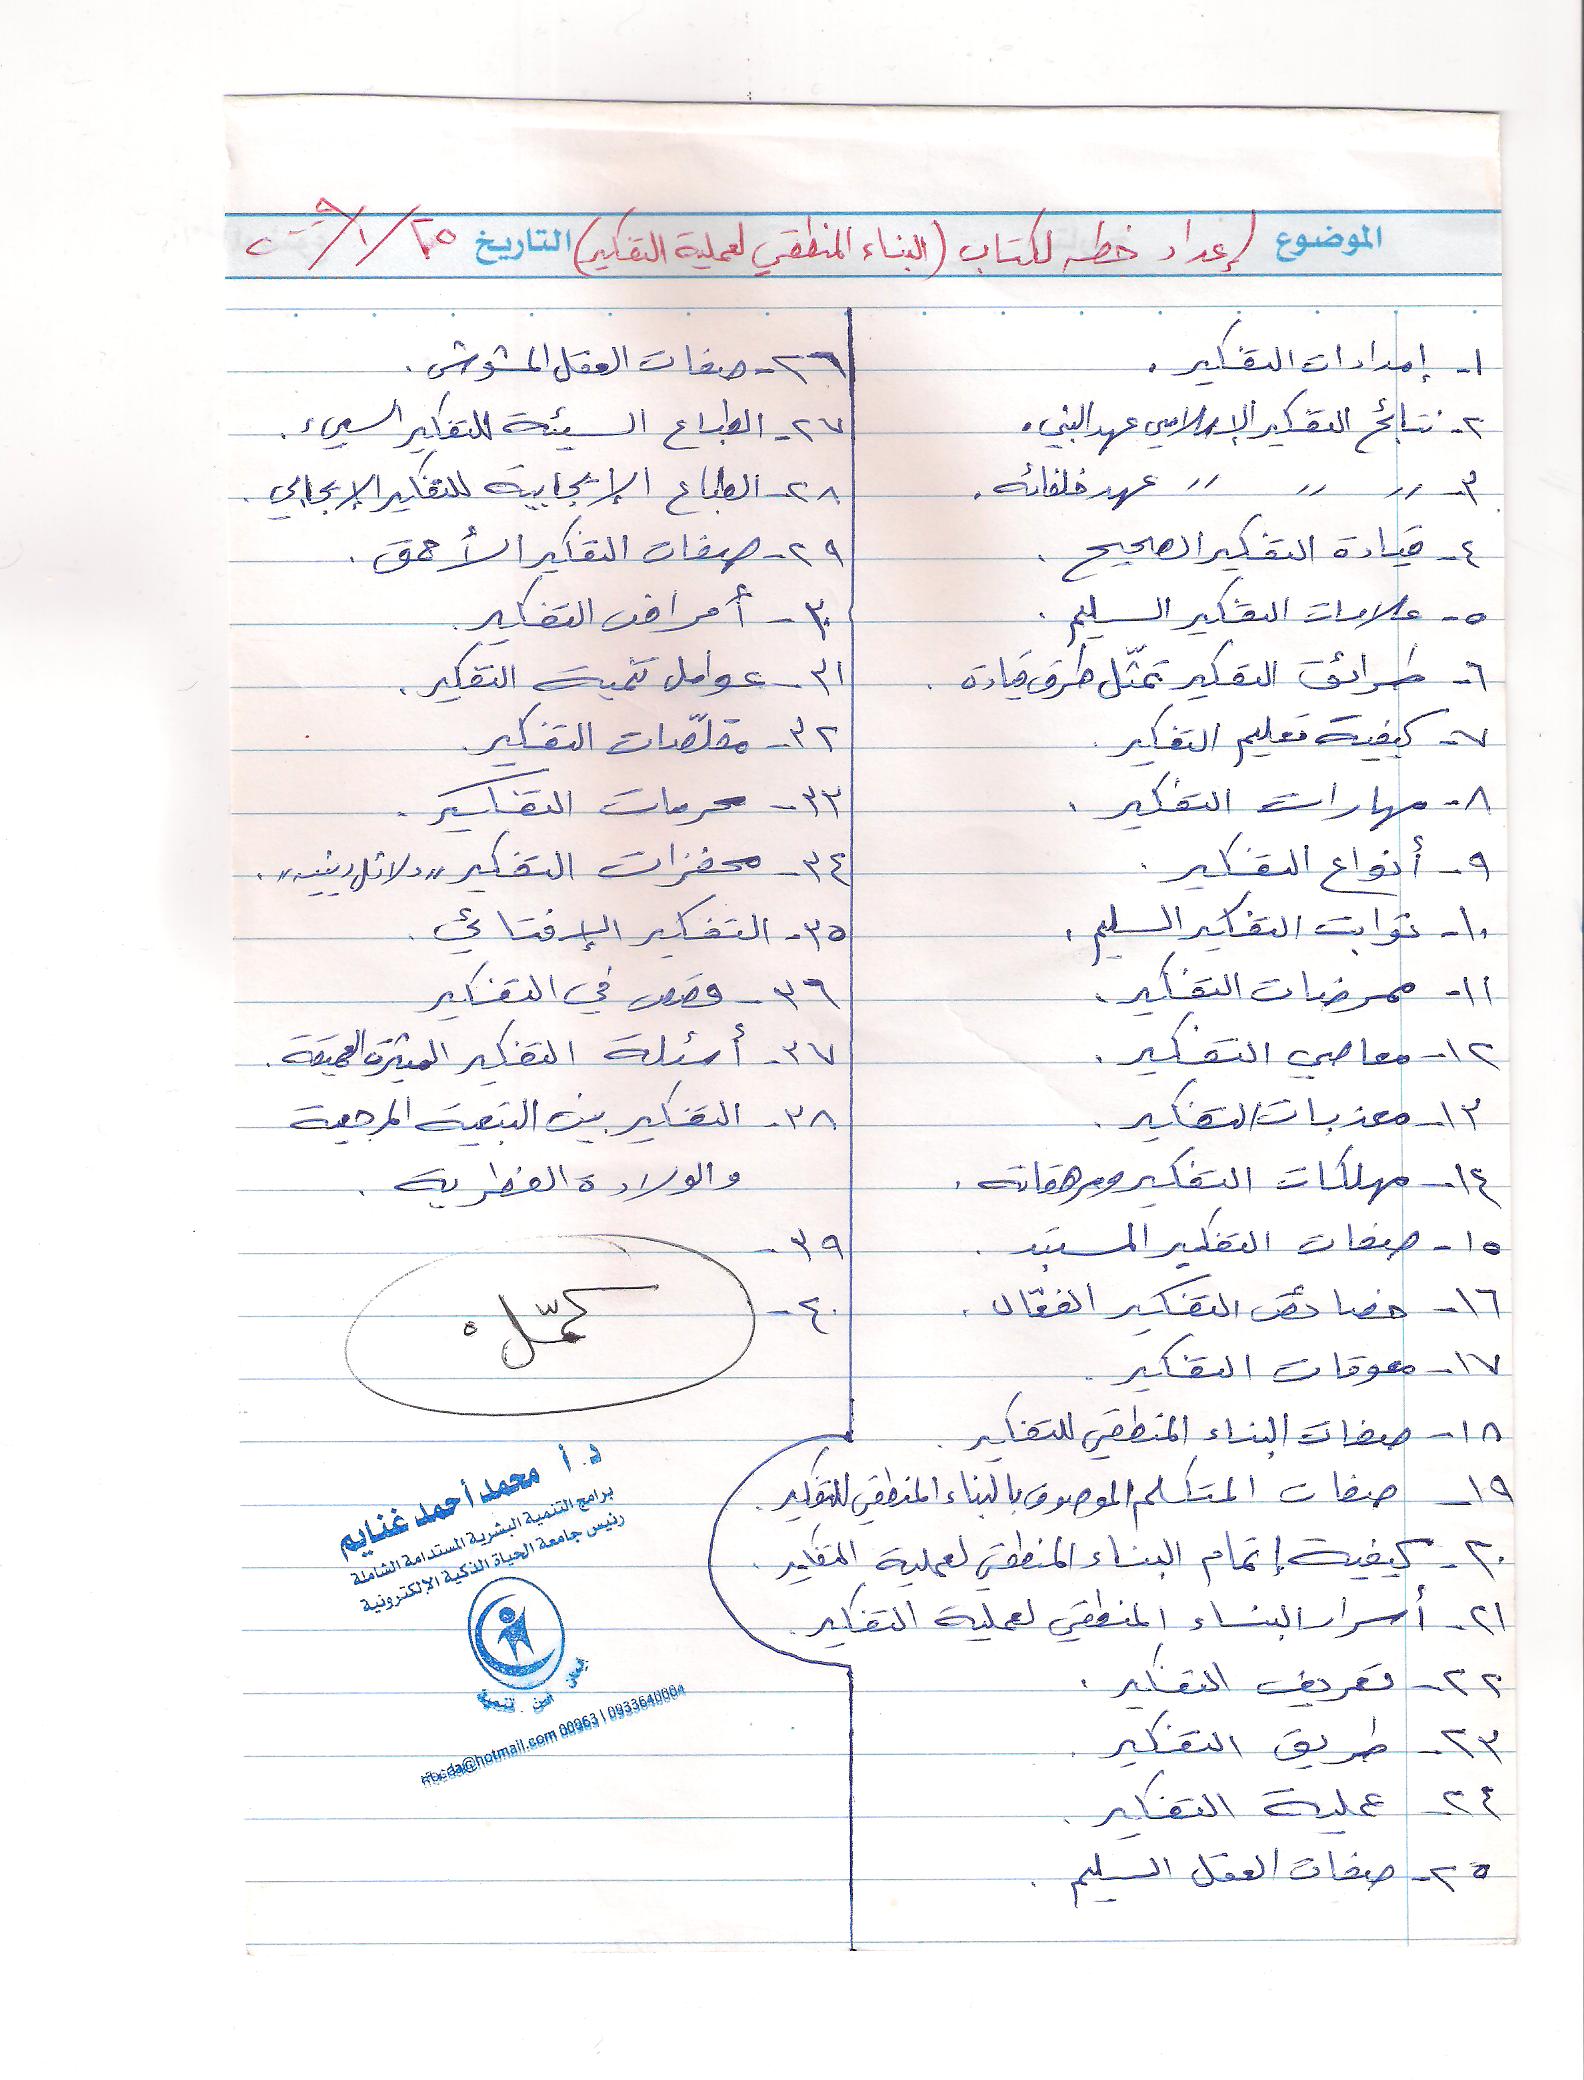 الموضوع إعداد خطه لكتاب (البناء المنطقي لعملية التفكير) التاريخ ٢٥/١/٢٠٠٩
١- إمدادات التفكير.
٢- نتائج التفكير الإسلامي عهد النبي.
٣- // // // عهد خلفائه.
٤- قيادة التفكير الصحيح.
٥- علامات التفكير السليم.
٦- طرائق التفكير تمثّل طرق قيادة.
٧- كيفية تعليم التفكير.
٨- مهارات التفكير.
٩- أنواع التفكير.
١٠- ثوابت التفكير السليم.
١١- ممرضات التفكير.
١٢- معاصي التفكير.
١٣- معذبات التفكير.
١٤- مهلكات التفكير ومرهقاته.
١٥- صفات التفكير المستبد.
١٦- خصائص التفكير الفعّال.
١٧- معوقات التفكير.
١٨- صفات البناء المنطقي للتفكير.
١٩- صفات المتكلم الموصوف بالبناء المنطقي للتفكير.
٢٠- كيفية إتمام البناء المنطقي لعملية التفكير.
٢١- أسرار البناء المنطقي لعملية التفكير.
٢٢- تعريف التفكير.
٢٣- طريق التفكير.
٢٤- عملية التفكير.
٢٥- صفات العقل السليم.
٢٦- صفات العقل المشوش.
٢٧- الطباع السيئة للتفكير السيء.
٢٨- الطباع الإيجابية للتفكير الإيجابي.
٢٩- صفات التفكير الأحمق.
٣٠- أمراض التفكير.
٣١- عوامل تنمية التفكير.
٣٢- مقلّصات التفكير.
٣٣- محرمات التفكير.
٣٤- محفزات التفكير "دلائل دينيه".
٣٥- التفكير الإفتائي.
٣٦- قصص في التفكير
٣٧- أسئلة التفكير المثيرة العميقة.
٣٨- التفكير بين التبعية المرجعية
والولادة الفطرية.
٣٩-
٤٠-
كمّل.
د. أ محمد أحمد غنايم
برامج التنمية البشرية المستدامة الشاملة
رئيس جامعة الحياة الذكية الإلكترونية
00963 | 0933640004